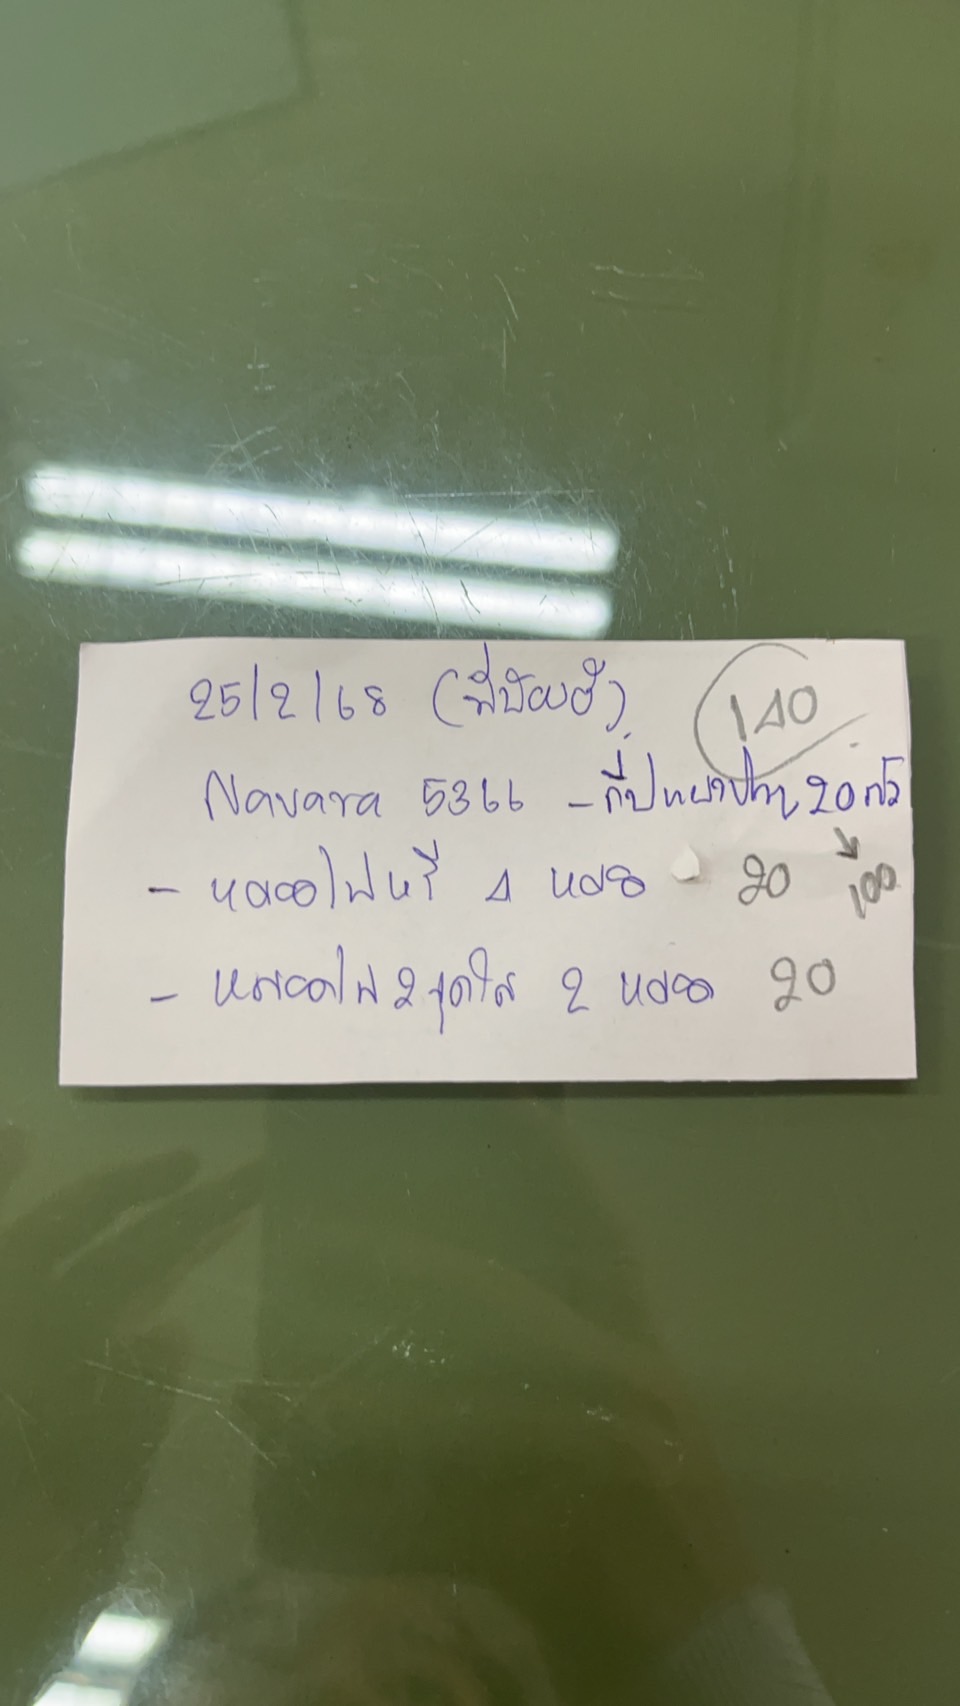 25/2/68 (พี่ป้อมฮ้ำ) 140
Navara 5366 - กี๊ปหยาปาก 20 ตัว
100
- หลอดไฟหรี่ 4 หลอด 20
- หลอดไฟ 2 จุดใส 2 หลอด 20